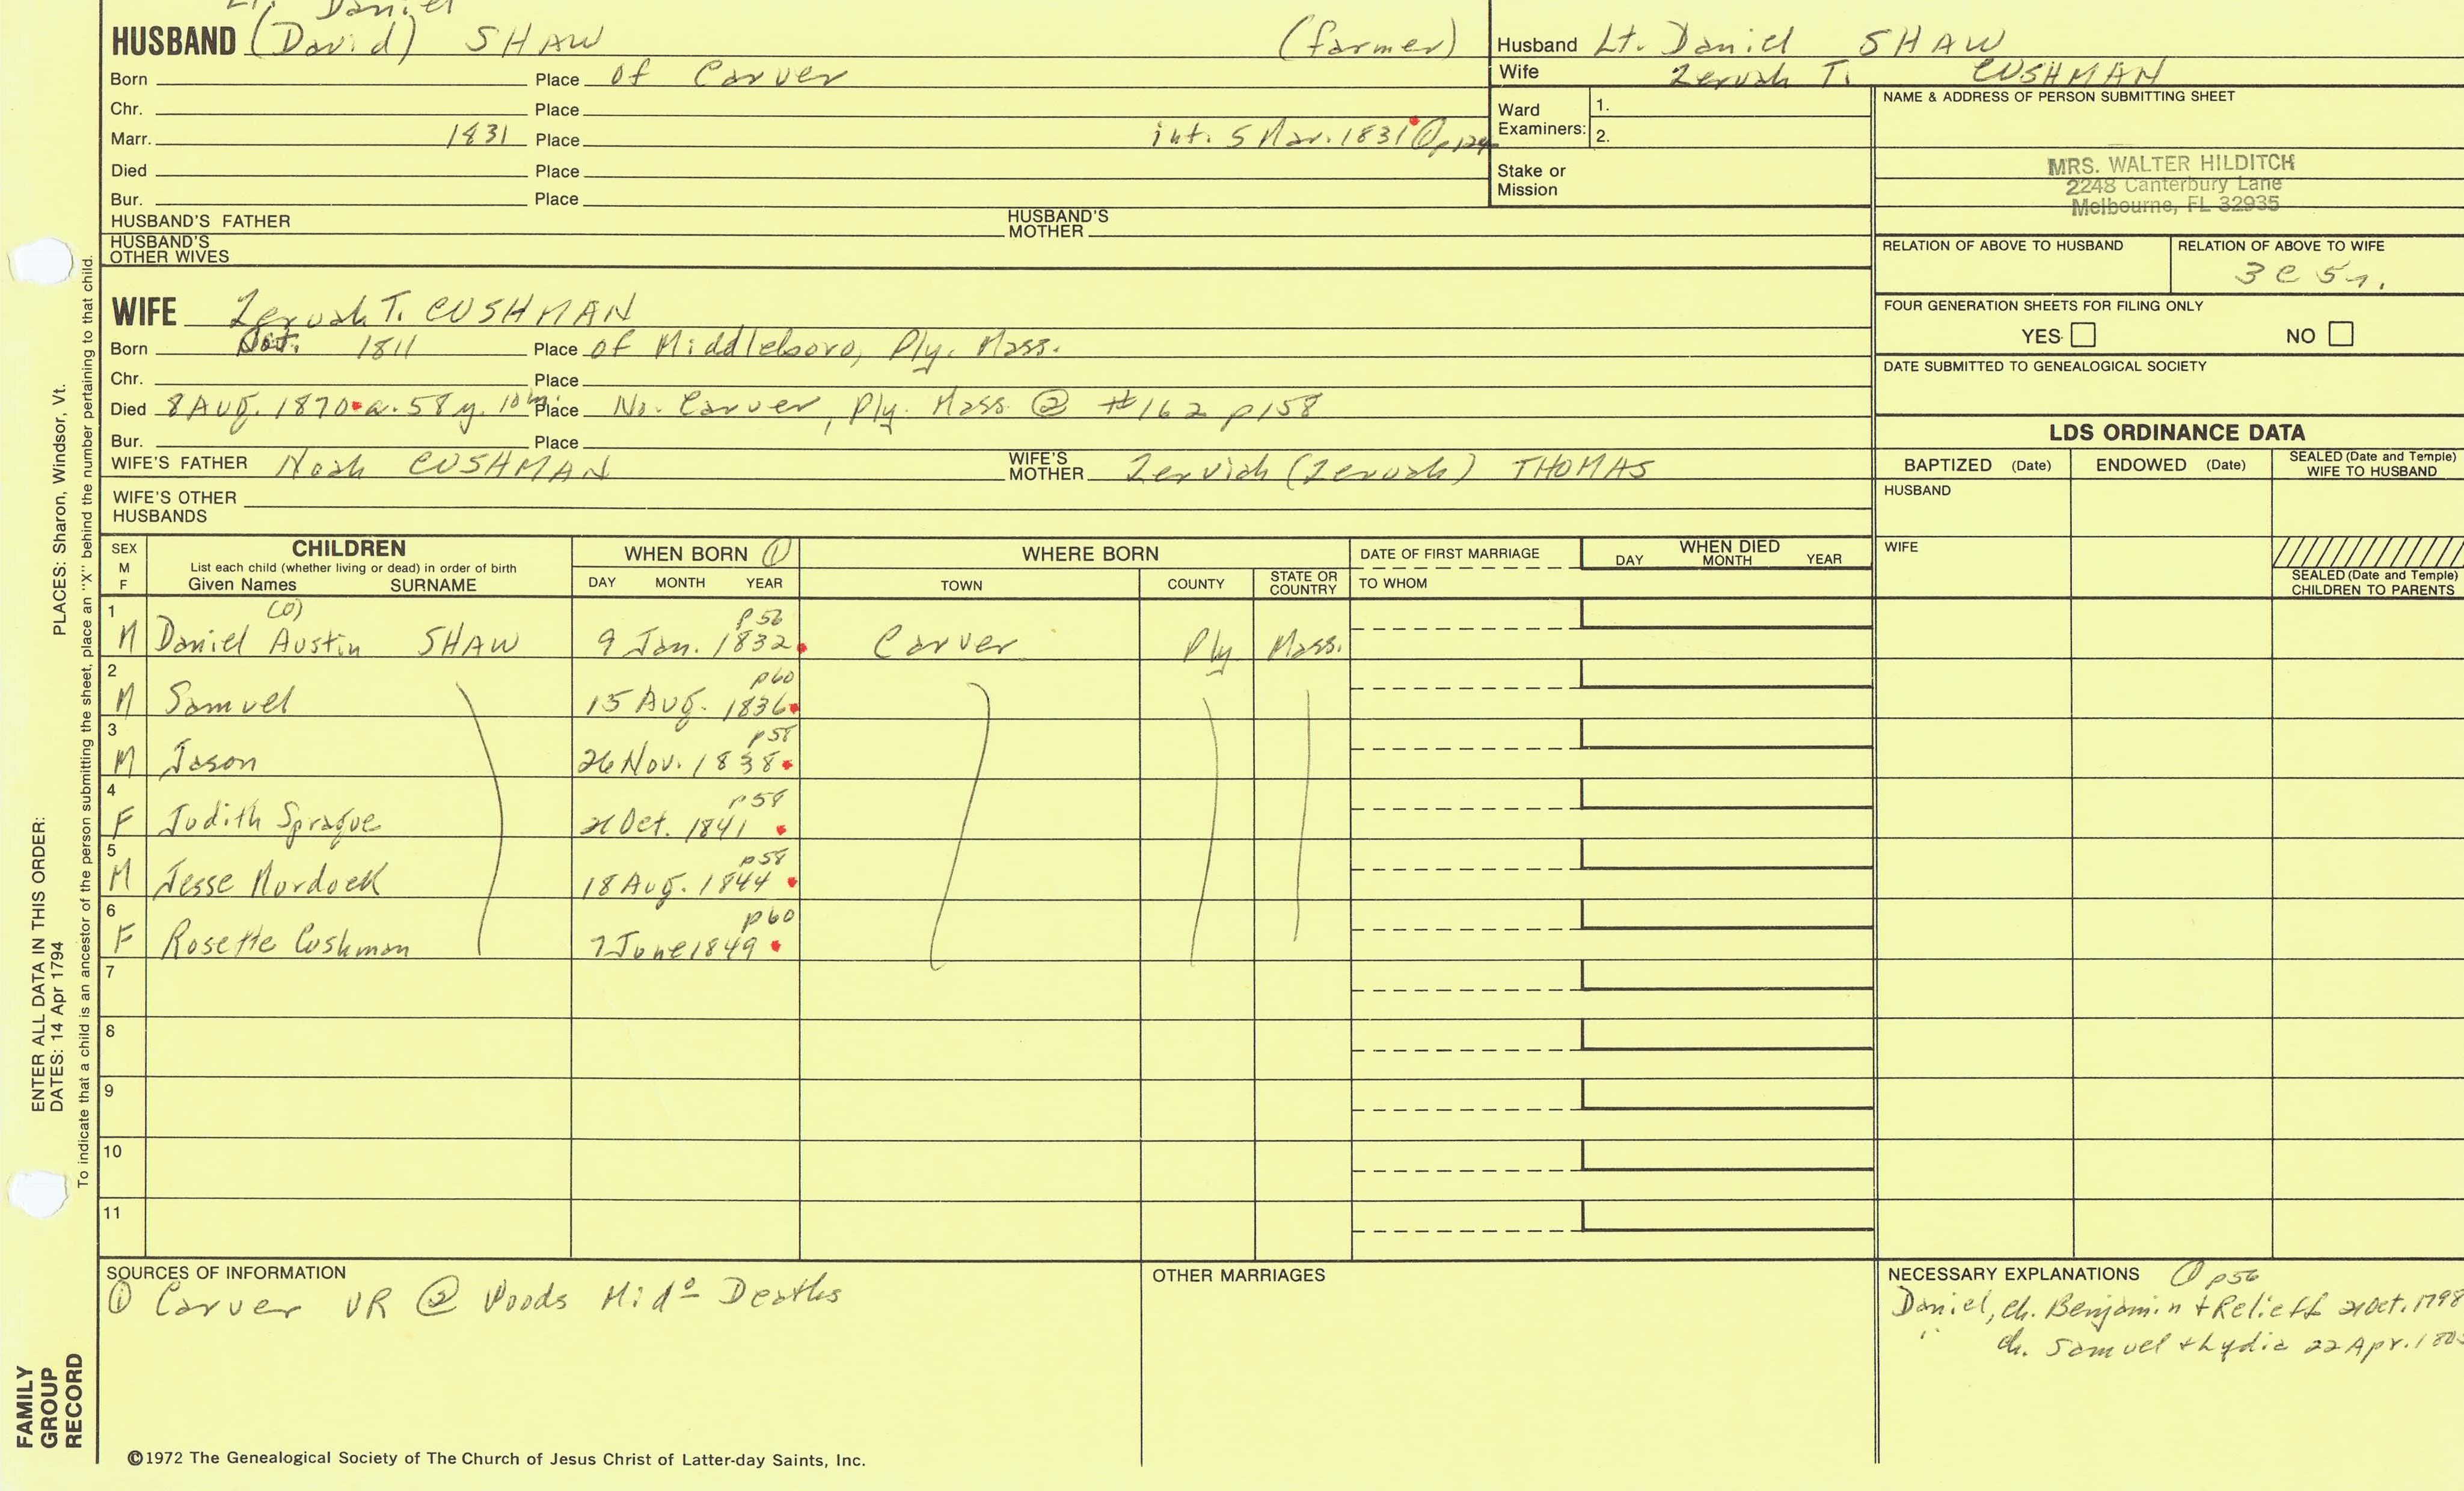 Lt. Daniel
HUSBAND (David) SHAW (farmer)
Born Place of Carver
Chr. Place
Marr. 1831 Place int. 5 Mar. 1831 ① p124
Died Place
Bur. Place
HUSBAND'S FATHER HUSBAND'S MOTHER
HUSBAND'S OTHER WIVES
Husband Lt. Daniel SHAW
Wife Zerush T. CUSHMAN
Ward Examiners: 1.
2.
Stake or Mission
NAME & ADDRESS OF PERSON SUBMITTING SHEET
MRS. WALTER HILDITCH
2248 Canterbury Lane
Melbourne, FL 32935
RELATION OF ABOVE TO HUSBAND RELATION OF ABOVE TO WIFE
3C 5r.
FOUR GENERATION SHEETS FOR FILING ONLY
YES NO
DATE SUBMITTED TO GENEALOGICAL SOCIETY
WIFE Zerush T. CUSHMAN
Born Oct. 1811 Place of Middleboro, Ply. Mass.
Chr. Place
Died 8 Aug. 1870 a. 58 y. 10 m. Place No. Carver, Ply. Mass. ② #162 p158
Bur. Place
WIFE'S FATHER Noah CUSHMAN WIFE'S MOTHER Zerviah (Zerush) THOMAS
WIFE'S OTHER HUSBANDS
LDS ORDINANCE DATA
BAPTIZED (Date) ENDOWED (Date) SEALED (Date and Temple) WIFE TO HUSBAND
HUSBAND
WIFE
SEALED (Date and Temple) CHILDREN TO PARENTS
SEX M F CHILDREN WHEN BORN ① WHERE BORN DATE OF FIRST MARRIAGE WHEN DIED
List each child (whether living or dead) in order of birth
Given Names SURNAME DAY MONTH YEAR TOWN COUNTY STATE OR COUNTRY TO WHOM DAY MONTH YEAR
1 (O) p56
M Daniel Austin SHAW 9 Jan. 1832 Carver Ply Mass.
2 p60
M Samuel 15 Aug. 1836
3 p58
M Jason 26 Nov. 1838
4 p58
F Judith Sprague 21 Oct. 1841
5 p58
M Jesse Murdock 18 Aug. 1844
6 p60
F Rosette Cushman 7 June 1849
7
8
9
10
11
SOURCES OF INFORMATION
① Carver VR ② Woods Midº Deaths
OTHER MARRIAGES
NECESSARY EXPLANATIONS ① p56
Daniel, ch. Benjamin + Relieff 21 Oct. 1798
" ch. Samuel + Lydia 22 Apr.
©1972 The Genealogical Society of The Church of Jesus Christ of Latter-day Saints, Inc.
FAMILY GROUP RECORD
ENTER ALL DATA IN THIS ORDER:
DATES: 14 Apr 1794 PLACES: Sharon, Windsor, Vt.
To indicate that a child is an ancestor of the person submitting the sheet, place an "X" behind the number pertaining to that child.